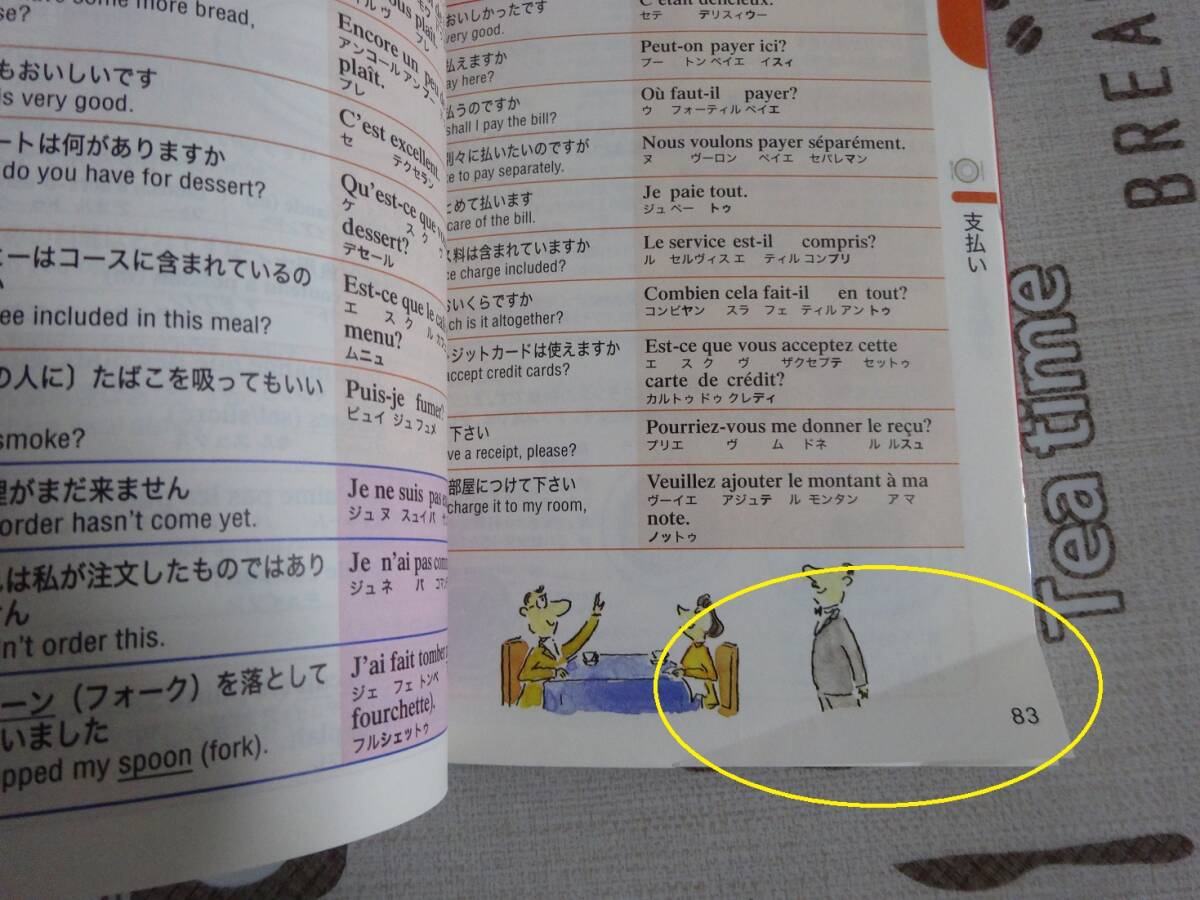 ve some more bread,
se?
plaît.
プレ
Encore un peu
アンコール アン プー
plaît.
プレ
もおいしいです
is very good.
C'est excellent.
セ テクセラン
ートは何がありますか
do you have for dessert?
Qu'est-ce que
ケ スク
dessert?
デセール
ーはコースに含まれているの
ee included in this meal?
Est-ce que le
エ スク ル
menu?
ムニュ
の人に）たばこを吸ってもいい
smoke?
Puis-je fumer?
ピュイ ジュ フュメ
理がまだ来ません
order hasn't come yet.
Je ne suis pas
ジュ ヌ スュイ パ
は私が注文したものではあり
n't order this.
Je n'ai pas
ジュ ネ パ
ーン（フォーク）を落として
いました
pped my spoon (fork).
J'ai fait tomber
ジェ フェ トンベ
fourchette).
フルシェットゥ
おいしかったです
very good.
C'était délicieux.
セテ デリスィウー
払えますか
ay here?
Peut-on payer ici?
プー トン ペイエ イスィ
払うのですか
shall I pay the bill?
Où faut-il payer?
ウ フォーティル ペイエ
別々に払いたいのですが
ke to pay separately.
Nous voulons payer séparément.
ヌ ヴーロン ペイエ セパレマン
とめて払います
care of the bill.
Je paie tout.
ジュ ペー トゥ
ス料は含まれていますか
ce charge included?
Le service est-il compris?
ル セルヴィス エ ティル コンプリ
おいくらですか
ch is it altogether?
Combien cela fait-il en tout?
コンビヤン スラ フェ ティル アン トゥ
ジットカードは使えますか
accept credit cards?
Est-ce que vous acceptez cette
エ ス ク ヴ ザクセプテ セットゥ
carte de crédit?
カルトゥ ドゥ クレディ
下さい
ve a receipt, please?
Pourriez-vous me donner le reçu?
プリエ ヴ ム ドネ ル ルスュ
部屋につけて下さい
charge it to my room,
Veuillez ajouter le montant à ma
ヴーイエ アジュテ ル モンタン ア マ
note.
ノットゥ
支払い
83
BREA
Tea time